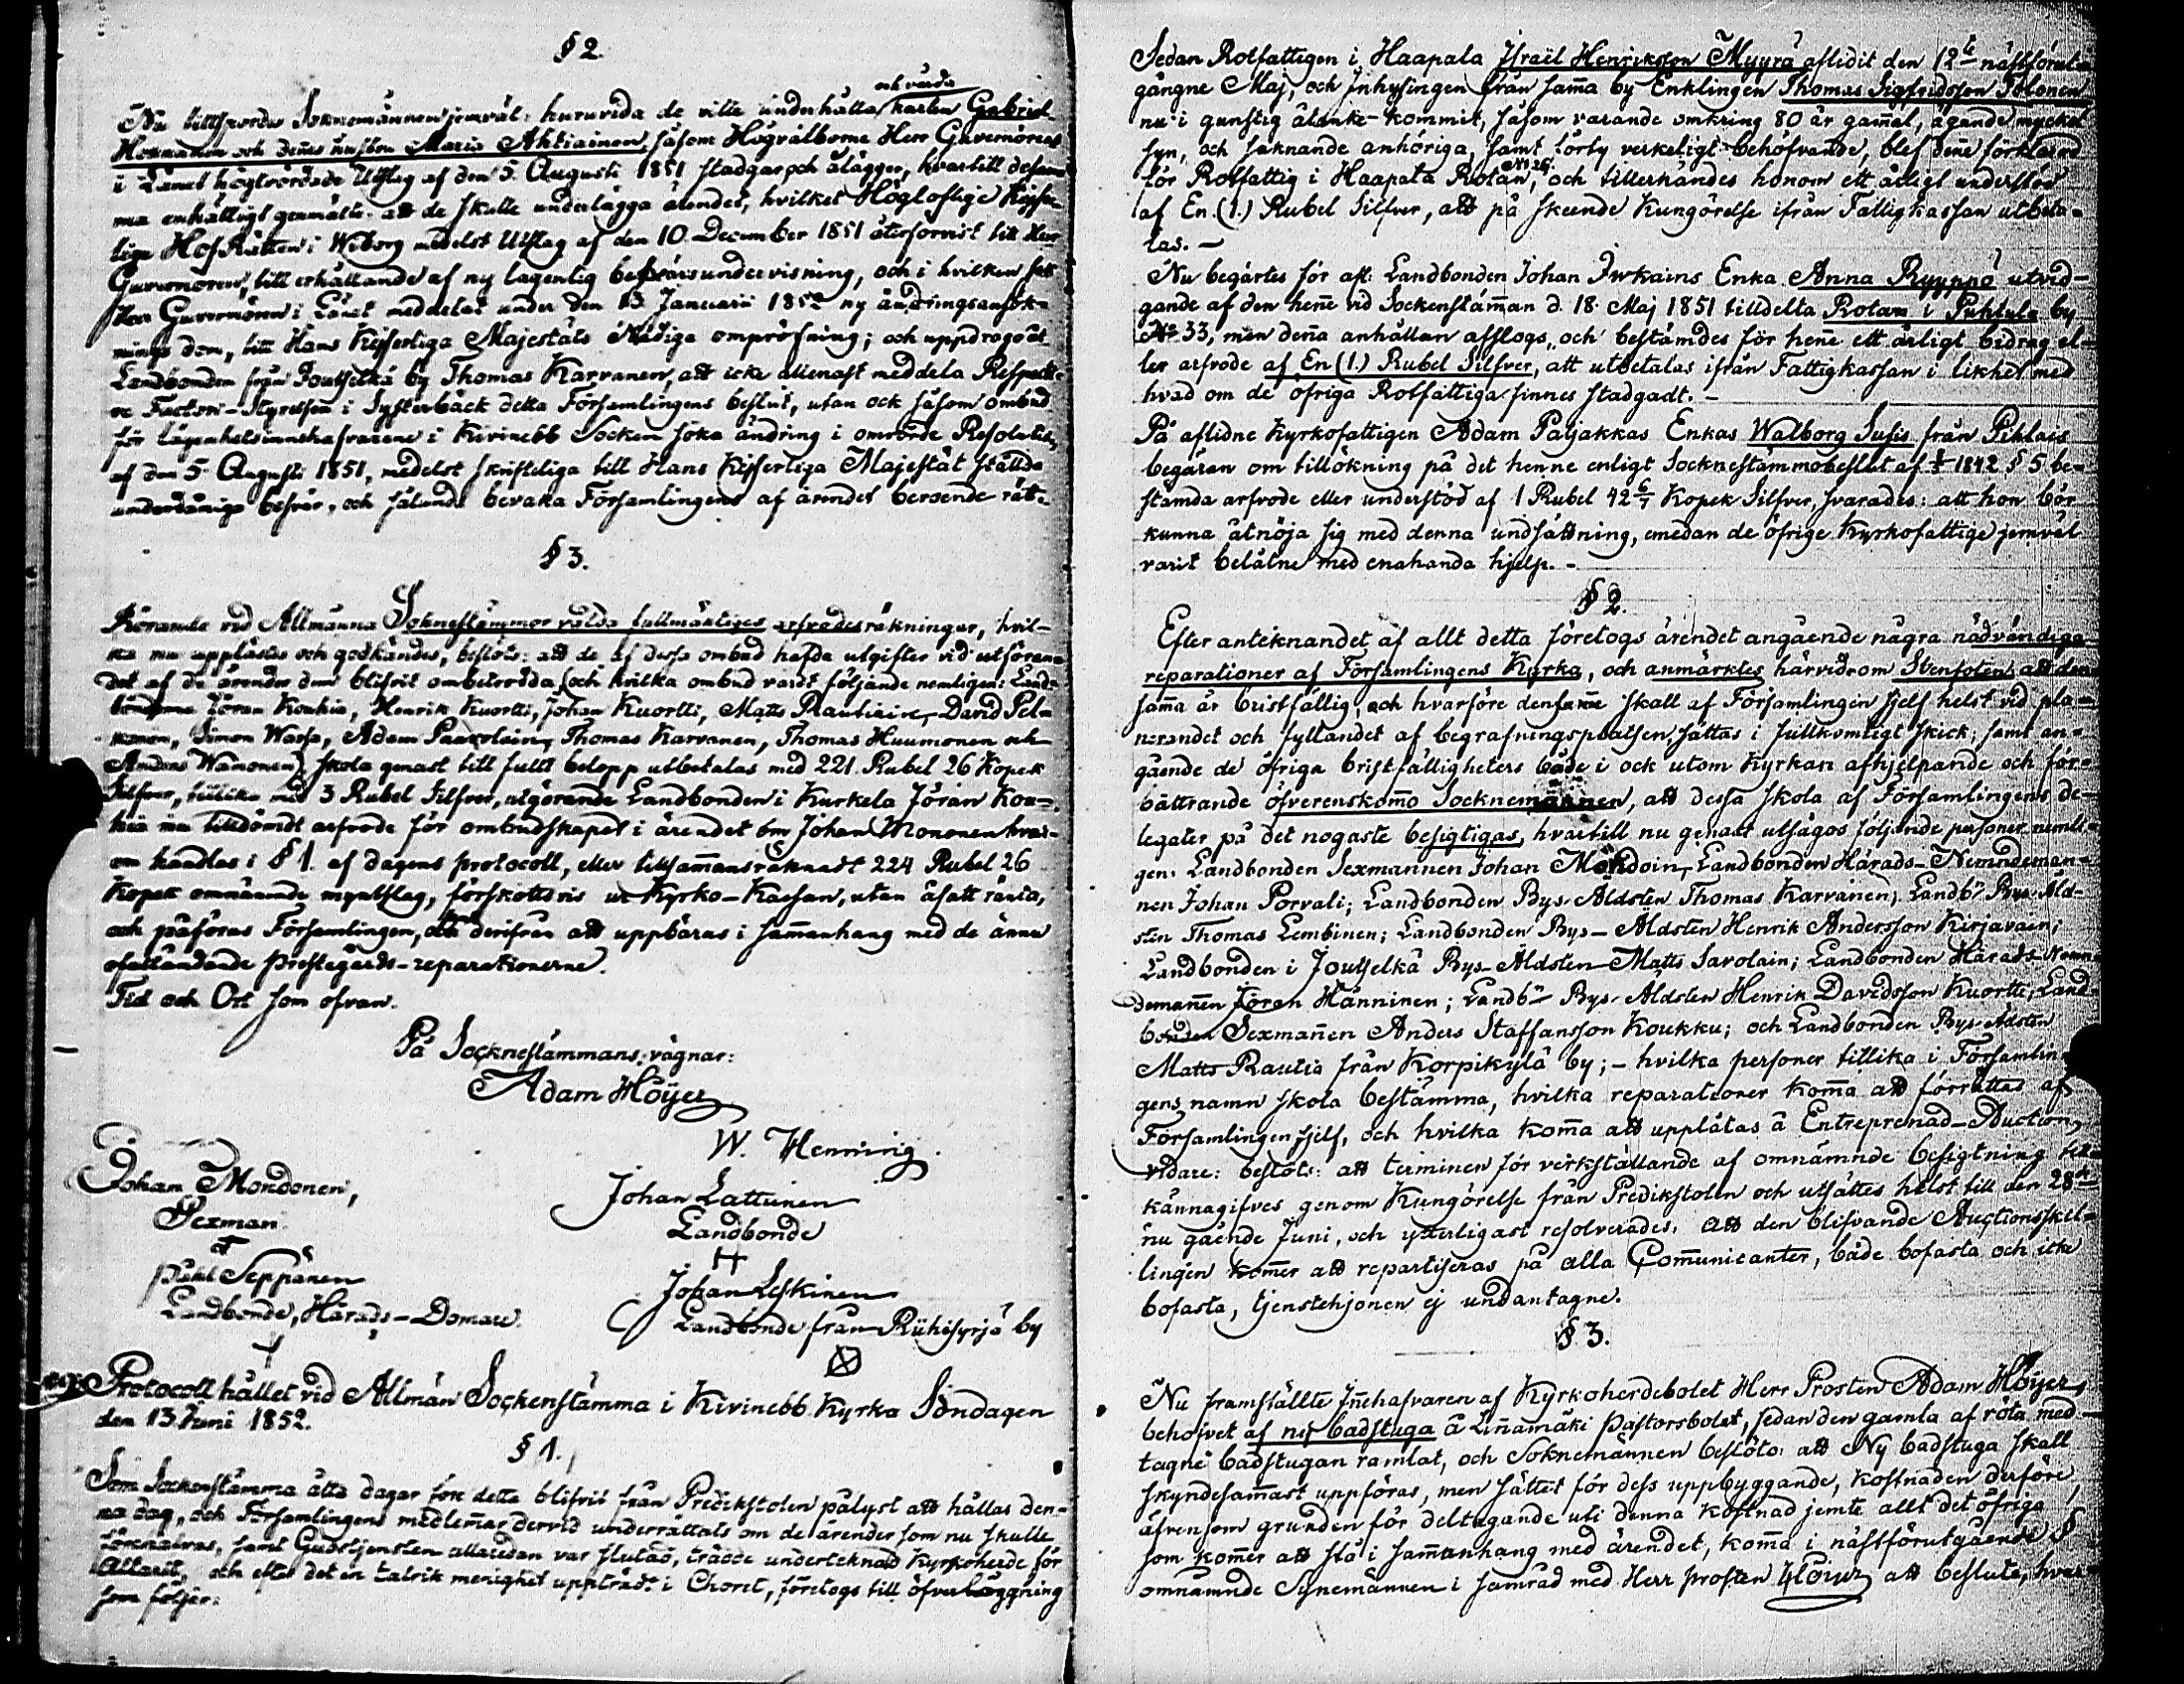 § 2.
och vårda
Nu tillfrordes Soknemännen jemväl: huruvida de ville underhålla karlen Gabriel
Hormanen och denes hustru Maria Ahtiainen, såsom Högvälborne Herr Guvernörens
i Länet högtvördade Utslag af den 5. Augusti 1851 stadgar och ålägger, hvartill desam-
ma enhälligt genmälte: att de skulle underlägga ärendet, hvilket Högloflige Kejser-
lige HofRätten i Wiborg medelst Utslag af den 10. December 1851 återförvist till Herr
Guvernören, till erhållande af ny lagenlig besvärsundervisning, och i hvilken
Herr Guvernören i Länet meddelat under den 13. Januarii 1852 ny ändringsansök-
nings dom, till Hans Kejserliga Majestäts Nådiga ompröfning; och uppdrogo åt
Landbonden från Joutselkä by Thomas Karvanen, att icke allenast meddela Respecti-
ve Factori-Styrelsen i Systerbäck detta Församlingens beslut, utan ock såsom ombud
för lägenhetsinnehafvarene i Kivinebb Socken söka ändring i omrörde Resolution
af den 5. Augusti 1851, medelst skrifteliga till Hans Kejserliga Majestät stälda
underdåniga besvär, och sålunda bevaka Församlingens af ärendet beroende rätt.
§ 3.
Rörande vid Allmänna Soknestämmor valda fullmäktiges arfvodesräkningar, hvil-
ka nu upplästes och godkändes, beslöts: att de af dessa ombud hafda utgifter vid utföran-
det af de ärender dem blifvit ombetrodda (och hvilka ombud varit följande nemligen: Land-
bönderne Jöran Koukia, Henrik Kuortti, Johan Kuortti, Matts Rautiain, David Pel-
konen, Simon Warsa, Adam Paavolain, Thomas Karvanen, Thomas Huumonen och
Anders Wämonen) skola genast till fullt belopp utbetalas med 221. Rubel 26 Kopek
Silfver, tillika med 3 Rubel Silfver, utgörande Landbonden i Kurkela Jöran Kou-
kia nu tilldömdt arfvode för ombudskapet i ärendet om Johan Mononen hvar-
om handlas i § 1. af dagens protocoll, eller tillsammansräknadt 224 Rubel 26
Kopek omnämde myntslag, förskottsvis ur Kyrko-Kassan, utan åsatt ränta,
och påföras Församlingen, att derifrån att uppbäras i sammanhang med de ännu
ofulländade Prestegårds-reparationerne.
Tid och Ort som ofvan.
På Socknestämmans vägnar:
Adam Höyer
W. Henning.
Johan Mondonen,
Sexman.
Påhl Seppänen
Landbonde, Härads-Domare.
Johan Lattunen
Landbonde
Johan Leskinen
Landbonde från Riihisyrjä by
Protocoll hållet vid Allmän Sockenstämma i Kivinebb Kyrka Söndagen
den 13. Juni 1852.
§ 1.
Som Sockenstämma åtta dagar före detta blifvit från Predikstolen pålyst att hållas den-
na dag, och Församlingens medlemar dervid underrättats om de ärender som nu skulle
förehafvas, samt Gudstjensten allaredan var slutad, trädde undertecknad Kyrkoherde för
Altaret, och efter det en talrik menighet uppträdt i Choret, företogs till öfverläggning
som följer:
Sedan Rotfattigen i Haapala Israël Henriksson Myyrä aflidit den 12te nästförut-
gångne Maj, och Inhysingen från samma by Enklingen Thomas Sigfridsson Tolonen
nu i gunstig åtanke kommit, såsom varande omkring 80 år gamal, ägande mycket
syn, och saknande anhöriga, samt törty verkeligt behöfvande, blef denne förklarad
för Rotfattig i Haapala Rotan, № 26 och tillerkändes honom ett årligt understöd
af En (1.) Rubel Silfver, att på skeende Kungörelse ifrån Fattigkassan utbeta-
las. –
Nu begärtes för afl: Landbonden Johan Jurkains Enka Anna Ryyppö utvid-
gande af den henne vid Sockenstämman d. 18. Maj 1851 tilldelta Rotan i Puhtula by
№ 33, men denna anhållan afslogs, och bestämdes för henne ett årligt bidrag el-
ler arfvode af En (1.) Rubel Silfver, att utbetalas ifrån Fattigkassan i likhet med
hvad om de öfriga Rotfattiga finnes stadgadt. –
På aflidne Kyrkofattigen Adam Paljakkas Enkas Walborg Susis från Pihlais
begäran om tillökning på det henne enligt Socknestämmobeslut af 1842 § 5 be-
stämda arfvode eller understöd af 1 Rubel 42 6/7 Kopek Silfver, svarades: att hon bör
kunna åtnöja sig med denna undsättning, emedan de öfrige Kyrkofattige jemväl
varit belåtne med enahanda hjelp. –
§ 2.
Efter anteknandet af allt detta företogs ärendet angående några nödvändiga
reparationer af Församlingens Kyrka, och anmärktes härvid om Stenfoten: att den
samma är bristfällig, och hvarföre densamme skall af Församlingen sjelf helst vid pla-
nerandet och fyllandet af begrafningsplatsen, sättas i fullkomligt skick; samt an-
gående de öfriga bristfälligheters både i ock utom Kyrkan afhjelpande och för-
bättrande öfverenskommo Socknemännen, att dessa skola af Församlingens de-
legater på det nogaste besigtigas, hvartill nu genast utsågos följande personer nemli-
gen: Landbonden Sexmannen Johan Mondoin, Landbonden Härads-Nemndeman-
nen Johan Porvali; Landbonden Bys-Äldsten Thomas Karvainen; Landbn Bys-Äld-
sten Thomas Lembinen; Landbonden Bys-Äldsten Henrik Andersson Kirjavain;
Landbonden i Joutselkä Bys-Äldsten Matts Savolain; Landbonden Härads-Nemn-
demannen Jöran Hänninen; Landbn Bys-Äldsten Henrik Davidsson Kuortti, Land-
bonden Sexmannen Anders Staffansson Koukku; och Landbonden Bys-Äldsten
Matts Rautia från Korpikylä by; – hvilka personer tillika i Församlin-
gens namn skola bestämma, hvilka reparationer komma att förrättas af
Församlingen sjelf, och hvilka komma att upplåtas å Entreprenad-Auction,
vidare: beslöts: att terminen för verkställande af omnämnde besigtning till-
kännagifves genom Kungörelse från Predikstolen och utsättes helst till den 28de
nu gående Juni, och ytterligast resolverades: att den blifvande Auctionsskil-
lingen kommer att repartiseras på alla Communicanter, både bofasta och icke
bofasta, tjenstehjonen ej undantagne.
§ 3.
Nu framställte Innehafvaren af Kyrkoherdebolet Herr Prosten Adam Höyer,
behofvet af ny badstuga å Linnamäki Pastorsbolet, sedan den gamla af röta med-
tagne badstugan ramlat, och Soknemännen beslöto: att Ny badstuga skall
skyndesammast uppföras, men sättet för dess uppbyggande, kostnaden derföre
äfvensom grunden för deltagande uti denna kostnad jemte allt det öfriga
som kommer att stå i sammanhang med ärendet, komma i nästförutgående §
omnämnde Synemännen i samråd med Herr Prosten Höyer att besluta, hvar-